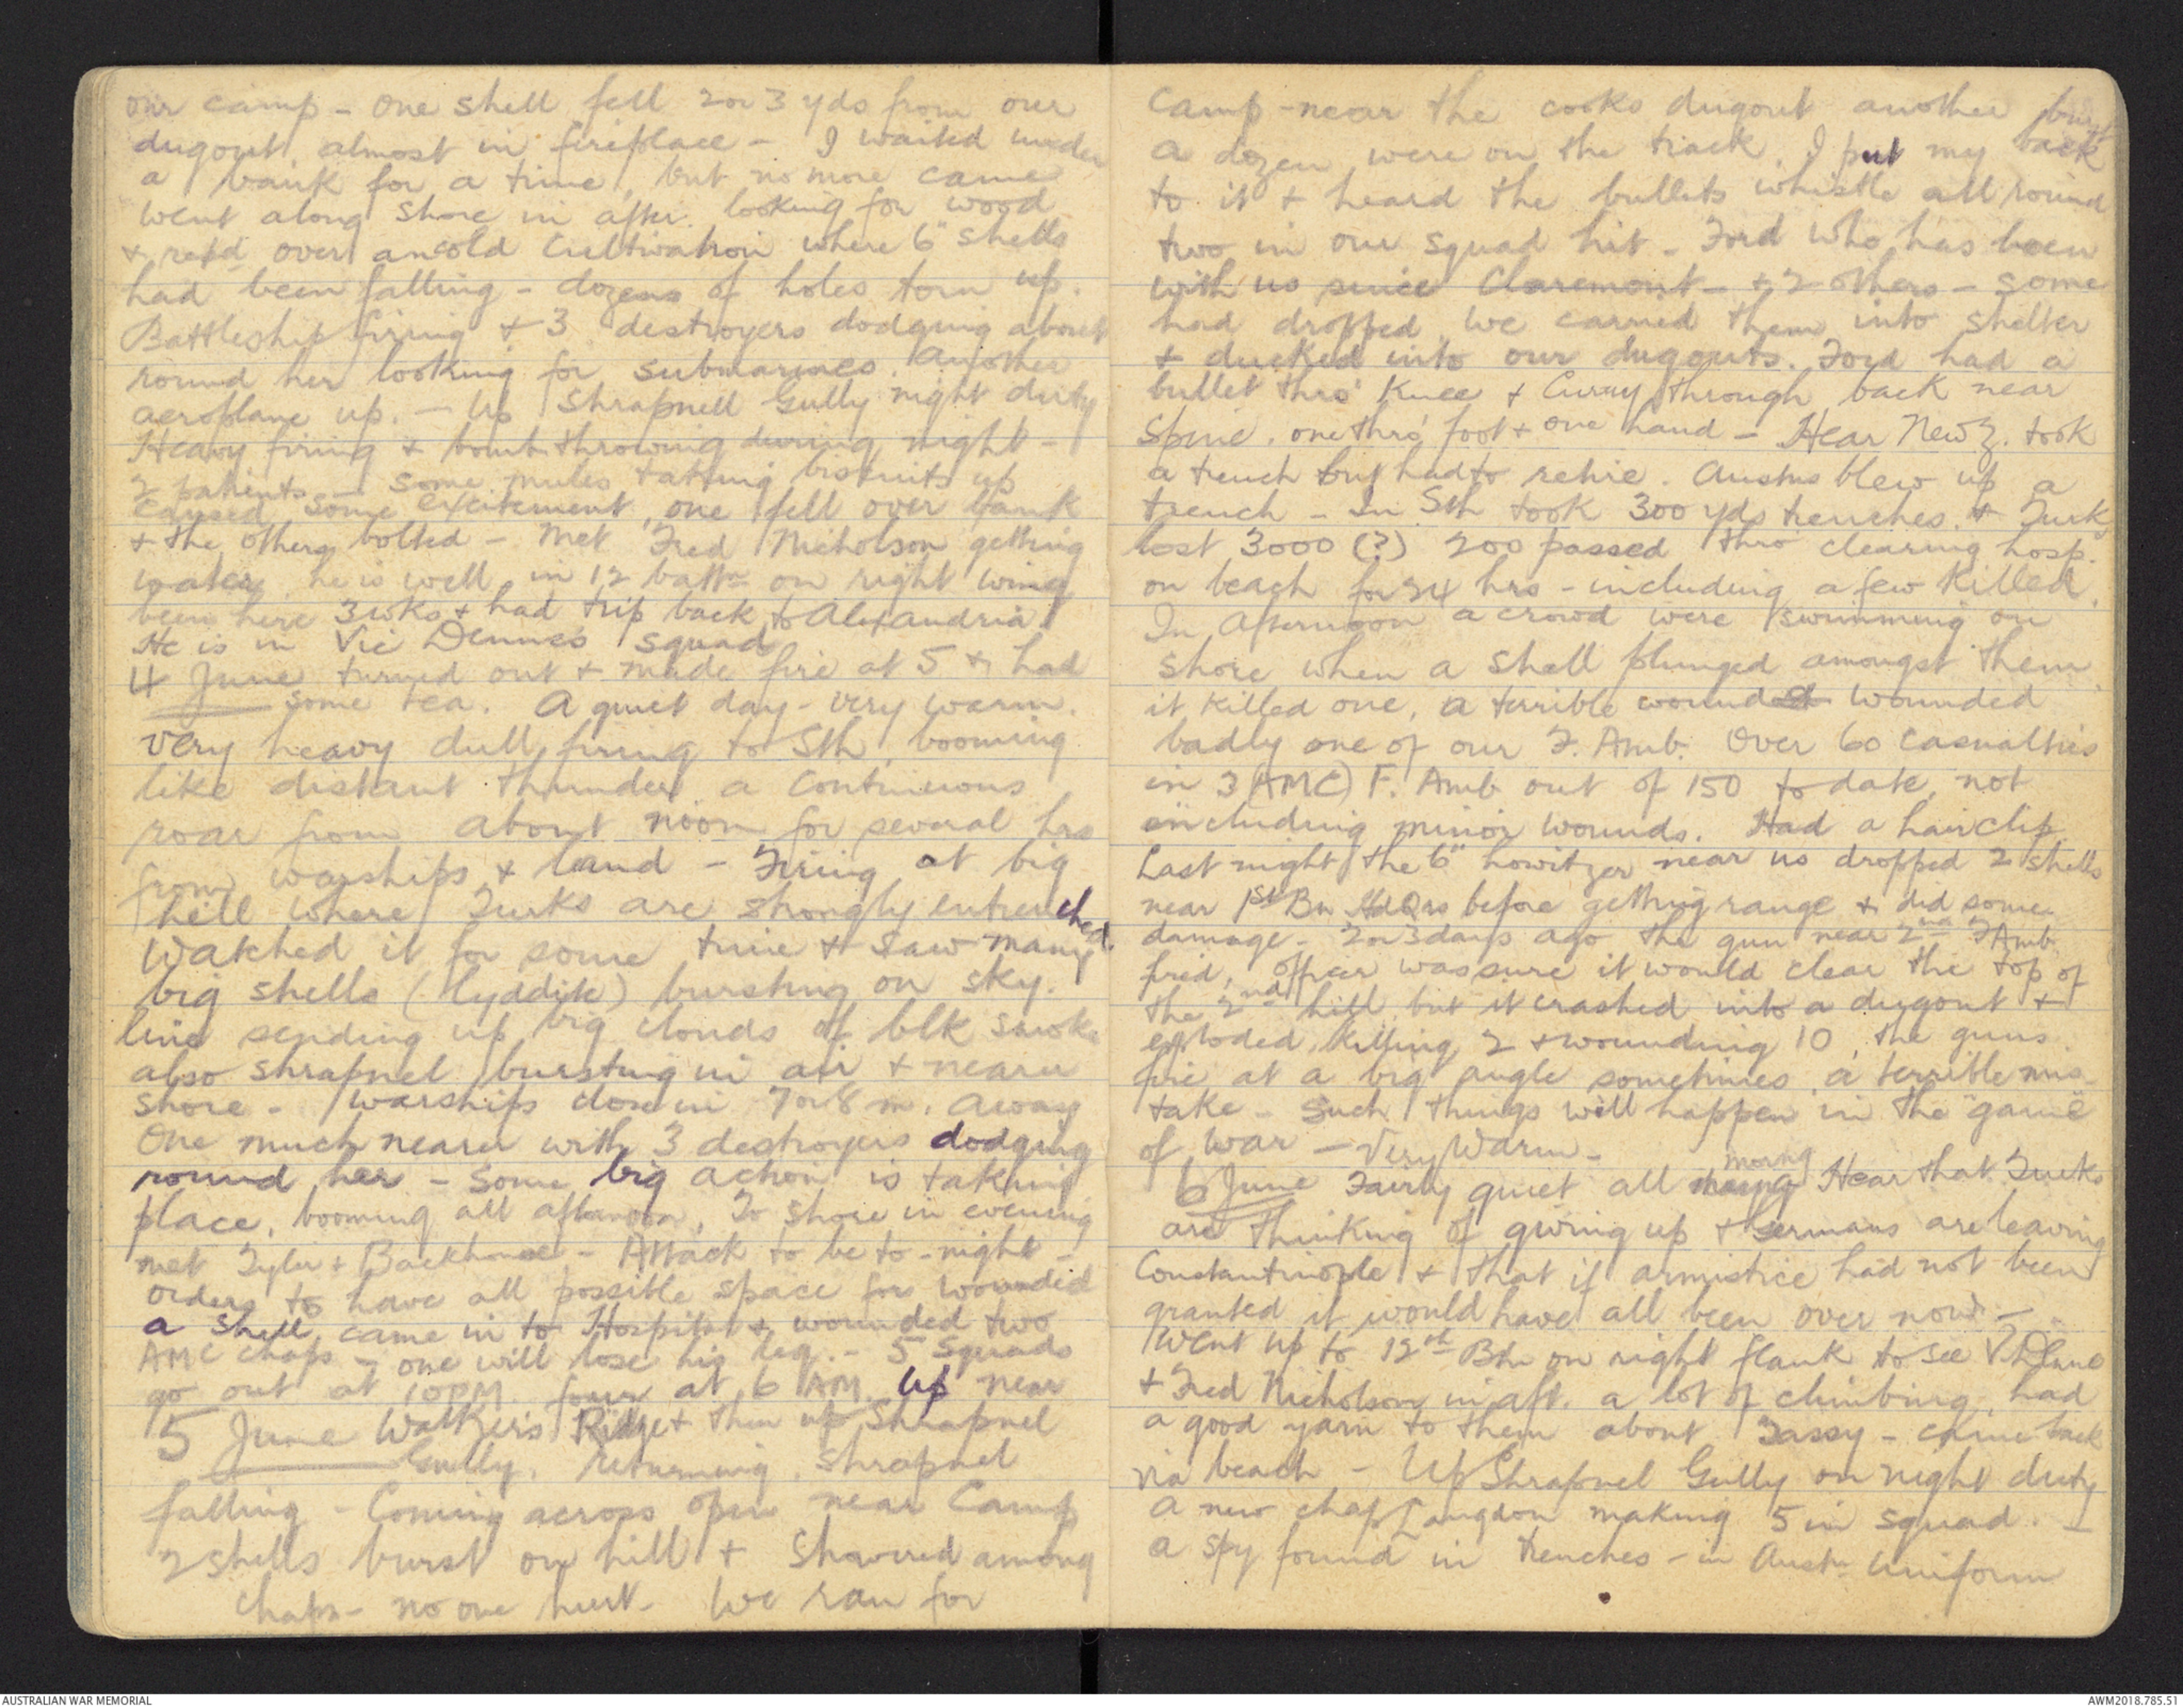 our camp - One shell fell 2 or 3 yds from our
dugout, almost in fireplace - I waited under
a bank for a time, but no more came
went along shore in after. looking for wood
& over an old Cultivation where 6" shells
had been falling - dozens of holes torn up.
Battleship firing & 3 destroyers dodging about
round her looking for submarines. Another
aeroplane up. - Up Shrapnell Gully night duty
Heavy firing & bomb throwing during night -
2 patients - some mules taking biscuits up
caused some excitement, one fell over bank
& the others bolted - Met Fred Nicholson getting
water, he is well, in 12 battn on right wing
been here 3 wks & had trip back to Alexandria
He is in Vic Dennes squad
4 June turned out & made fire at 5 & had
some tea. A quiet day - very warm.
Very heavy dull firing to Sth, booming
like distant thunder a continuous
roar from about noon for several hrs
from warships & land - Firing at big
hill where Turks are strongly entrenched.
Watched it for some time & saw many
big shells (lyddite) bursting on sky.
line sending up big clouds of blk smoke
also shrapnel bursting in air & nearer
shore - warships close in 7 or 8 m. away
One much nearer with 3 destroyers dodging
round her - Some big action is taking
place, booming all afternoon, To shore in evening
met Tyler & Backhouse - Attack to be to-night -
orders to have all possible space for wounded
a shell came in to Hospital & wounded two
AMC chaps - one will lose his leg. - 5 squads
go out at 10 PM four at 6 AM. Up near
5 June Walkers Ridge & then up Shrapnel
Gully, returning, shrapnel
falling - Coming across open near Camp
2 shells burst on hill & showered among
chaps - no one hurt - We ran for
Camp - near the cooks dugout another burst
a dozen were on the track. I put my back
to it & heard the bullets whistle all round
two in our squad hit - Ford who has been
with us since Claremont - & 2 others - some
had dropped, we carried them into shelter
& ducked into our dugouts. Ford had a
bullet thro' knee & away through back near
spine, one thro' foot & one hand - Hear New Z. took
a trench but had to retire. Austns blew up a
trench - In Sth took 300 yds trenches. & Turks
lost 3000 (?) 200 passed thro clearing hosp.
on beach for 24 hrs - including a few killed.
In Afternoon a crowd were swimming on
shore when a shell plunged amongst them
it killed one, a terrible wound wounded
badly one of our F. Amb. Over 60 casualties
in 3 (AMC) F. Amb out of 150 to date, not
including minor wounds. Had a hair clip
Last night the 6" howitzer near us dropped 2 shells
near 1st Bn HdQrs before getting range & did some
damage - 2 or 3 days ago the gun near 2nd F Amb.
fired, officer was sure it would clear the top of
the 2nd hill, but it crashed into a dugout &
exploded, killing 2 & wounding 10, the guns
fire at a big angle sometimes, a terrible mis-
take - Such things will happen in the "game"
of war - Very Warm -
6 June Fairly quiet all morng Hear that Turks
are thinking of giving up & Germans are leaving
Constantinople & that if armistice had not been
granted it would have all been over now -
Went up to 12th Btn on right flank to see
& Fred Nicholson in aft. a lot of climbing, had
a good yarn to them about Tassy - came back
via beach - Up Shrapnel Gully on night duty
A new chap Langdon making 5 in squad. -
a spy found in trenches - in Austn Uniform
AUSTRALIAN WAR MEMORIAL
AWM2018.785.51